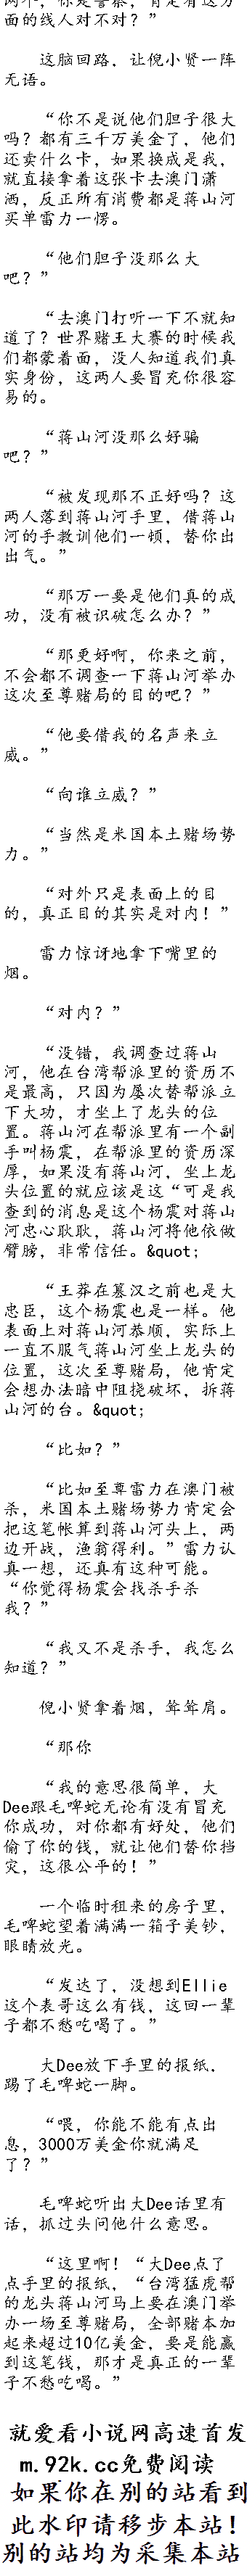 两个，你是警察，肯定有这方
面的线人对不对？”
这脑回路，让倪小贤一阵
无语。
“你不是说他们胆子很大
吗？都有三千万美金了，他们
还卖什么卡，如果换成是我，
就直接拿着这张卡去澳门潇
洒，反正所有消费都是蒋山河
买单雷力一愣。
“他们胆子没那么大
吧？”
“去澳门打听一下不就知
道了？世界赌王大赛的时候我
们都蒙着面，没人知道我们真
实身份，这两人要冒充你很容
易的。
“蒋山河没那么好骗
吧？”
“被发现那不正好吗？这
两人落到蒋山河手里，借蒋山
河的手教训他们一顿，替你出
出气。”
“那万一要是他们真的成
功，没有被识破怎么办？”
“那更好啊，你来之前，
不会都不调查一下蒋山河举办
这次至尊赌局的目的吧？”
“他要借我的名声来立
威。”
“向谁立威？”
“当然是米国本土赌场势
力。”
“对外只是表面上的目
的，真正目的其实是对内！”
雷力惊讶地拿下嘴里的
烟。
“对内？”
“没错，我调查过蒋山
河，他在台湾帮派里的资历不
是最高，只因为屡次替帮派立
下大功，才坐上了龙头的位
置。蒋山河在帮派里有一个副
手叫杨震，在帮派里的资历深
厚，如果没有蒋山河，坐上龙
头位置的就应该是这“可是我
查到的消息是这个杨震对蒋山
河忠心耿耿，蒋山河将他依做
臂膀，非常信任。&quot;
“王莽在篡汉之前也是大
忠臣，这个杨震也是一样。他
表面上对蒋山河恭顺，实际上
一直不服气蒋山河坐上龙头的
位置，这次至尊赌局，他肯定
会想办法暗中阻挠破坏，拆蒋
山河的台。&quot;
“比如？”
“比如至尊雷力在澳门被
杀，米国本土赌场势力肯定会
把这笔帐算到蒋山河头上，两
边开战，渔翁得利。”雷力认
真一想，还真有这种可能。
“你觉得杨震会找杀手杀
我？”
“我又不是杀手，我怎么
知道？”
倪小贤拿着烟，耸耸肩。
“那你
“我的意思很简单，大
Dee跟毛啤蛇无论有没有冒充
你成功，对你都有好处，他们
偷了你的钱，就让他们替你挡
灾，这很公平的！”
一个临时租来的房子里，
毛啤蛇望着满满一箱子美钞，
眼睛放光。
“发达了，没想到Ellie
这个表哥这么有钱，这回一辈
子都不愁吃喝了。”
大Dee放下手里的报纸，
踢了毛啤蛇一脚。
“喂，你能不能有点出
息，3000万美金你就满足
了？”
毛啤蛇听出大Dee话里有
话，抓过头问他什么意思。
“这里啊！“大Dee点了
点手里的报纸，“台湾猛虎帮
的龙头蒋山河马上要在澳门举
办一场至尊赌局，全部赌本加
起来超过10亿美金，要是能赢
到这笔钱，那才是真正的一辈
子不愁吃喝。”
就爱看小说网高速首发
m.92k.cc免费阅读
如果你在别的站看到
此水印请移步本站！
别的站均为采集本站